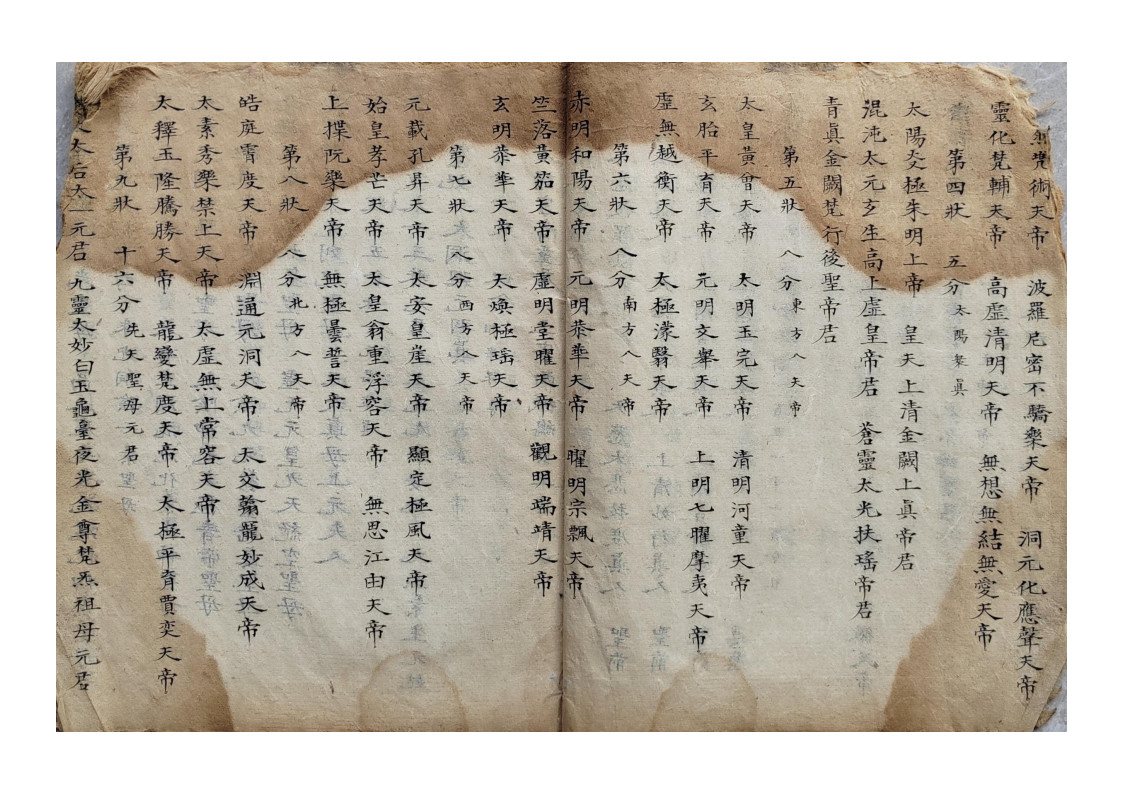 無髡術天帝　波羅尼密不驕樂天帝　洞元化應聲天帝
靈化梵輔天帝　高虛清明天帝　無想無結無愛天帝
第四狀　五分　太陽衆眞
太陽炎極朱明上帝　皇天上清金闕上眞帝君
混沌太元玄生高上虛皇帝君　蒼靈太光扶瑤帝君
青眞金闕梵行後聖帝君
第五狀　八分　東方八天帝
太皇黄曾天帝　太明玉完天帝　清明河童天帝
玄胎平育天帝　元明文舉天帝　上明七曜摩夷天帝
虛無越衡天帝　太極濛翳天帝
第六狀　八分　南方八天帝
赤明和陽天帝　元明恭華天帝　曜明宗飄天帝
竺落黄笳天帝　虛明堂曜天帝　觀明端靖天帝
玄明恭華天帝　太煥極瑶天帝
第七狀　八分　西方八天帝
元載孔昇天帝　太安皇崖天帝　顯定極風天帝
始皇孝芒天帝　太皇翁重浮容天帝　無思江由天帝
上揲阮樂天帝　無極曇誓天帝
第八狀　八分　北方八天帝
皓庭霄度天帝　淵通元洞天帝　太文翰龍妙成天帝
太素秀樂禁上天帝　太虛無上常容天帝
太釋玉隆騰勝天帝　龍變梵度天帝　太極平育賈奕天帝
第九狀　十六分　先天聖母元君
太君太一元君　九靈太妙白玉龜臺夜光金尊梵炁祖母元君